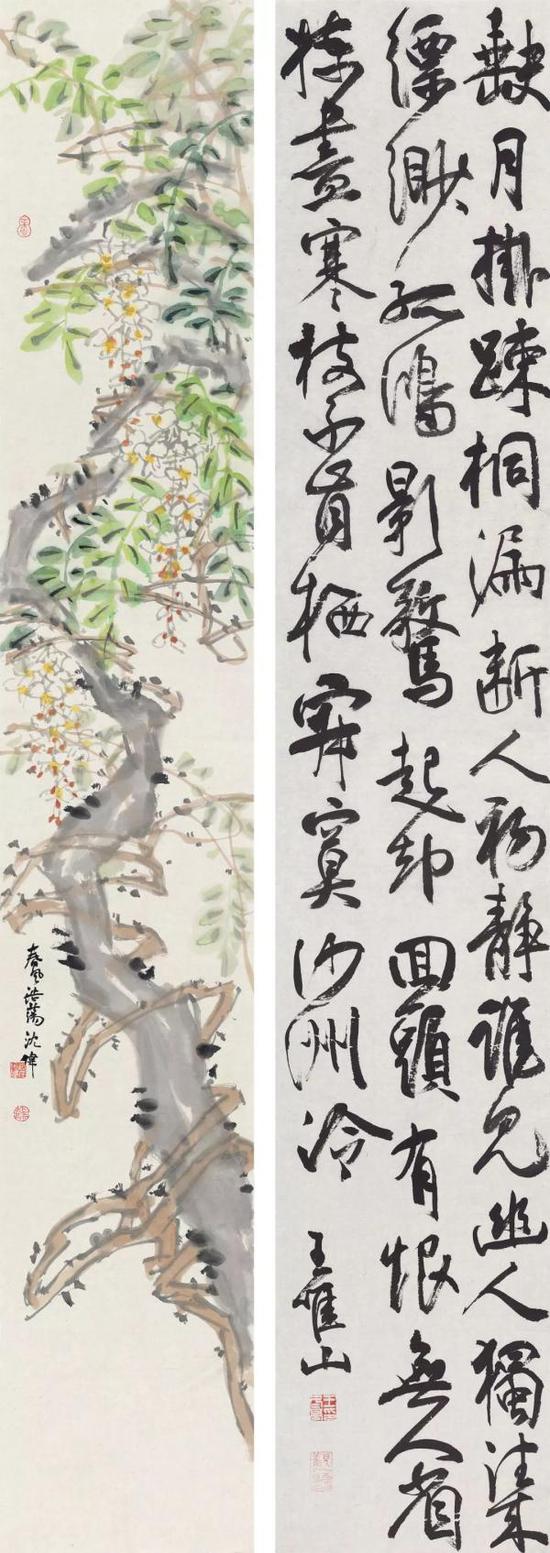 缺月掛疎桐漏断人初静誰見幽人獨往来
縹緲孤鴻影驚起却回頭有恨無人省
揀盡寒枝不肯栖寂寞沙洲冷
王山
春風浩蕩 沈偉